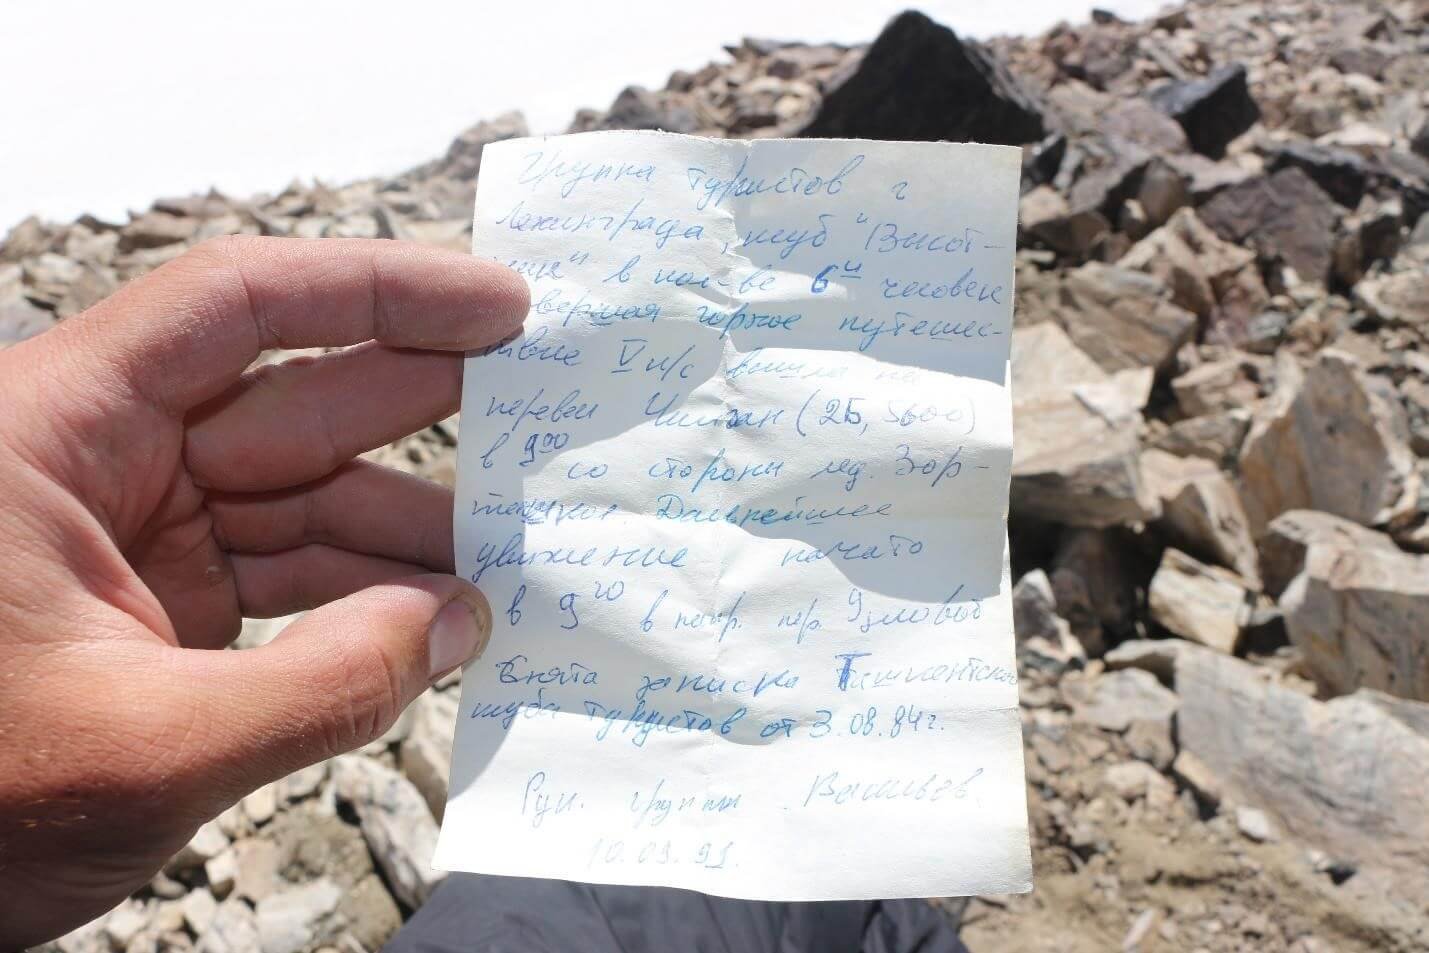 Группа туристов г
Ленинграда, клуб "Высот-
ник" в кол-ве 6и человек
совершая горное путешес-
твие V к/с вышла на
перевал (2Б, 5600)
в 9⁰⁰ со стороны лед. Зор-
ташкол. Дальнейшее
движение начато
в 9²⁰ в напр. пер. Узловой
Снята записка Ташкентского
клуба туристов от 3.08.84г.
Рук. группы Васильев.
10.09.91.